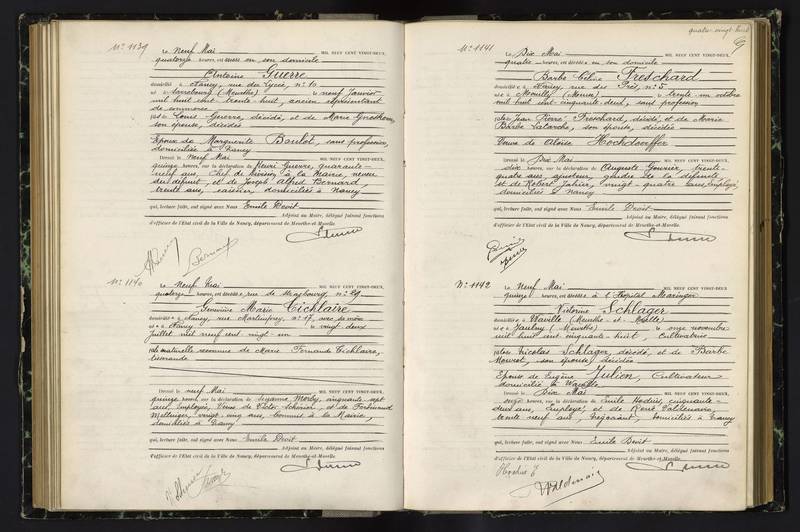 N° 1139
Le Neuf Mai MIL NEUF CENT VINGT-DEUX,
quatorze heures, est décédé en son domicile
Antoine Guerre
domicilié à Nancy, rue du Lycée, n° 10
né à Sarrebourg (Meurthe) le neuf Janvier
mil huit cent trente huit, ancien représentant
de commerce
fils de Louis Guerre, décédé, et de Marie
son épouse, décédée
Epoux de Marguerite Barlot, sans profession,
domiciliée à Nancy
Dressé le Neuf Mai MIL NEUF CENT VINGT-DEUX,
quinze heures, sur la déclaration de Henri Guerre, quarante-
neuf ans, Chef de division à la Mairie, neveu
du défunt, et de Joseph Alfred Bernard,
trente ans, domiciliés à Nancy
qui, lecture faite, ont signé avec Nous Emile Devit
Adjoint au Maire, délégué faisant fonctions
d'officier de l'Etat civil de la Ville de Nancy, département de Meurthe-et-Moselle.
N° 1140
Le Neuf Mai MIL NEUF CENT VINGT-DEUX,
quatorze heures, est décédée rue de Strasbourg, n° 29
Geneviève Marie Cichlaire
domiciliée à Nancy, rue n° 17, avec sa mère
née à Nancy le vingt deux
Juillet mil neuf cent vingt-un
fille naturelle reconnue de Marie Fernande Cichlaire,
Dressé le neuf Mai MIL NEUF CENT VINGT-DEUX,
quinze heures, sur la déclaration de Suzanne cinquante sept
ans, Employée, Veuve de Victor et de Ferdinand
vingt cinq ans, Commis à la Mairie,
domiciliés à Nancy
qui, lecture faite, ont signé avec Nous Emile Devit
Adjoint au Maire, délégué faisant fonctions
d'officier de l'Etat civil de la Ville de Nancy, département de Meurthe-et-Moselle.
quatre-vingt huit
N° 1141
Le Dix Mai MIL NEUF CENT VINGT-DEUX,
quatre heures, est décédée en son domicile
Barbe Céline Freschard
domiciliée à Nancy, rue des Prés, n° 5
née à Mouilly (Meuse) le trente un octobre
mil huit cent cinquante deux, sans profession
fille de Jean Pierre Freschard, décédé, et de Marie
Barbe son épouse, décédée
Veuve de Aloïse Hochdoerffer
Dressé le Dix Mai MIL NEUF CENT VINGT-DEUX,
dix heures, sur la déclaration de Auguste trente-
quatre ans, ajusteur, gendre de la défunte,
et de Robert vingt-quatre ans, Employé,
domiciliés à Nancy
qui, lecture faite, ont signé avec Nous Emile Devit
Adjoint au Maire, délégué faisant fonctions
d'officier de l'Etat civil de la Ville de Nancy, département de Meurthe-et-Moselle.
N° 1142
Le Neuf Mai MIL NEUF CENT VINGT-DEUX,
quinze heures, est décédée à l'Hôpital
Victorine Schlager
domiciliée à Waville (Meurthe-et-Moselle)
née à Jaulny (Meurthe) le onze novembre
mil huit cent cinquante-huit, Cultivatrice
fille de Nicolas Schlager, décédé, et de Barbe
son épouse, décédée
Epouse de Eugène Julien, Cultivateur
domicilié à Waville
Dressé le Dix Mai MIL NEUF CENT VINGT-DEUX,
seize heures, sur la déclaration de Emile cinquante-
deux ans, Employé, et de René Valdenaire,
trente neuf ans, domiciliés à Nancy
qui, lecture faite, ont signé avec Nous Emile Devit
Adjoint au Maire, délégué faisant fonctions
d'officier de l'Etat civil de la Ville de Nancy, département de Meurthe-et-Moselle.